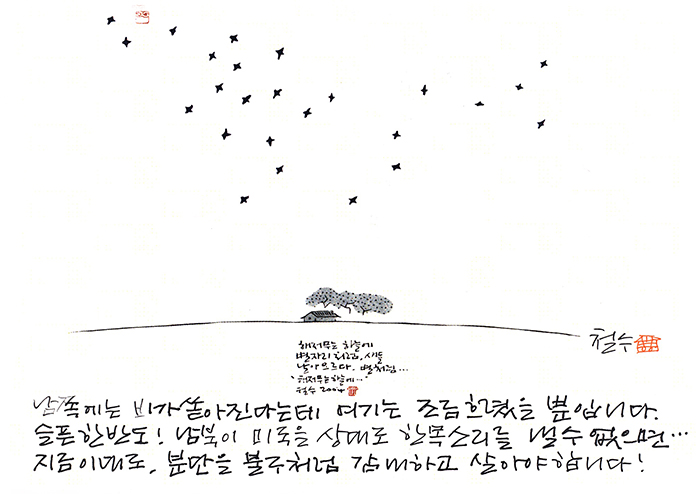 철수
해저무는 하늘에
별자리처럼, 새들
날아오르다. 별처럼…
'해저무는 하늘에…'
철수 2004
남쪽에는 비가 쏟아진다는데 여기는 조금 흐렸을 뿐입니다.
슬픈 한반도! 남북이 미국을 상대로 한목소리를 낼 수 없으면…
지금 이대로, 분단을 불구처럼 감내하고 살아야 합니다!